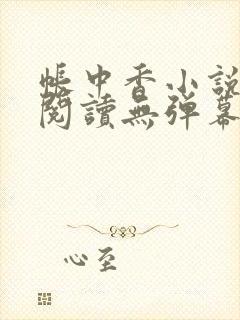 帳中香小說
閱讀無彈幕
心至